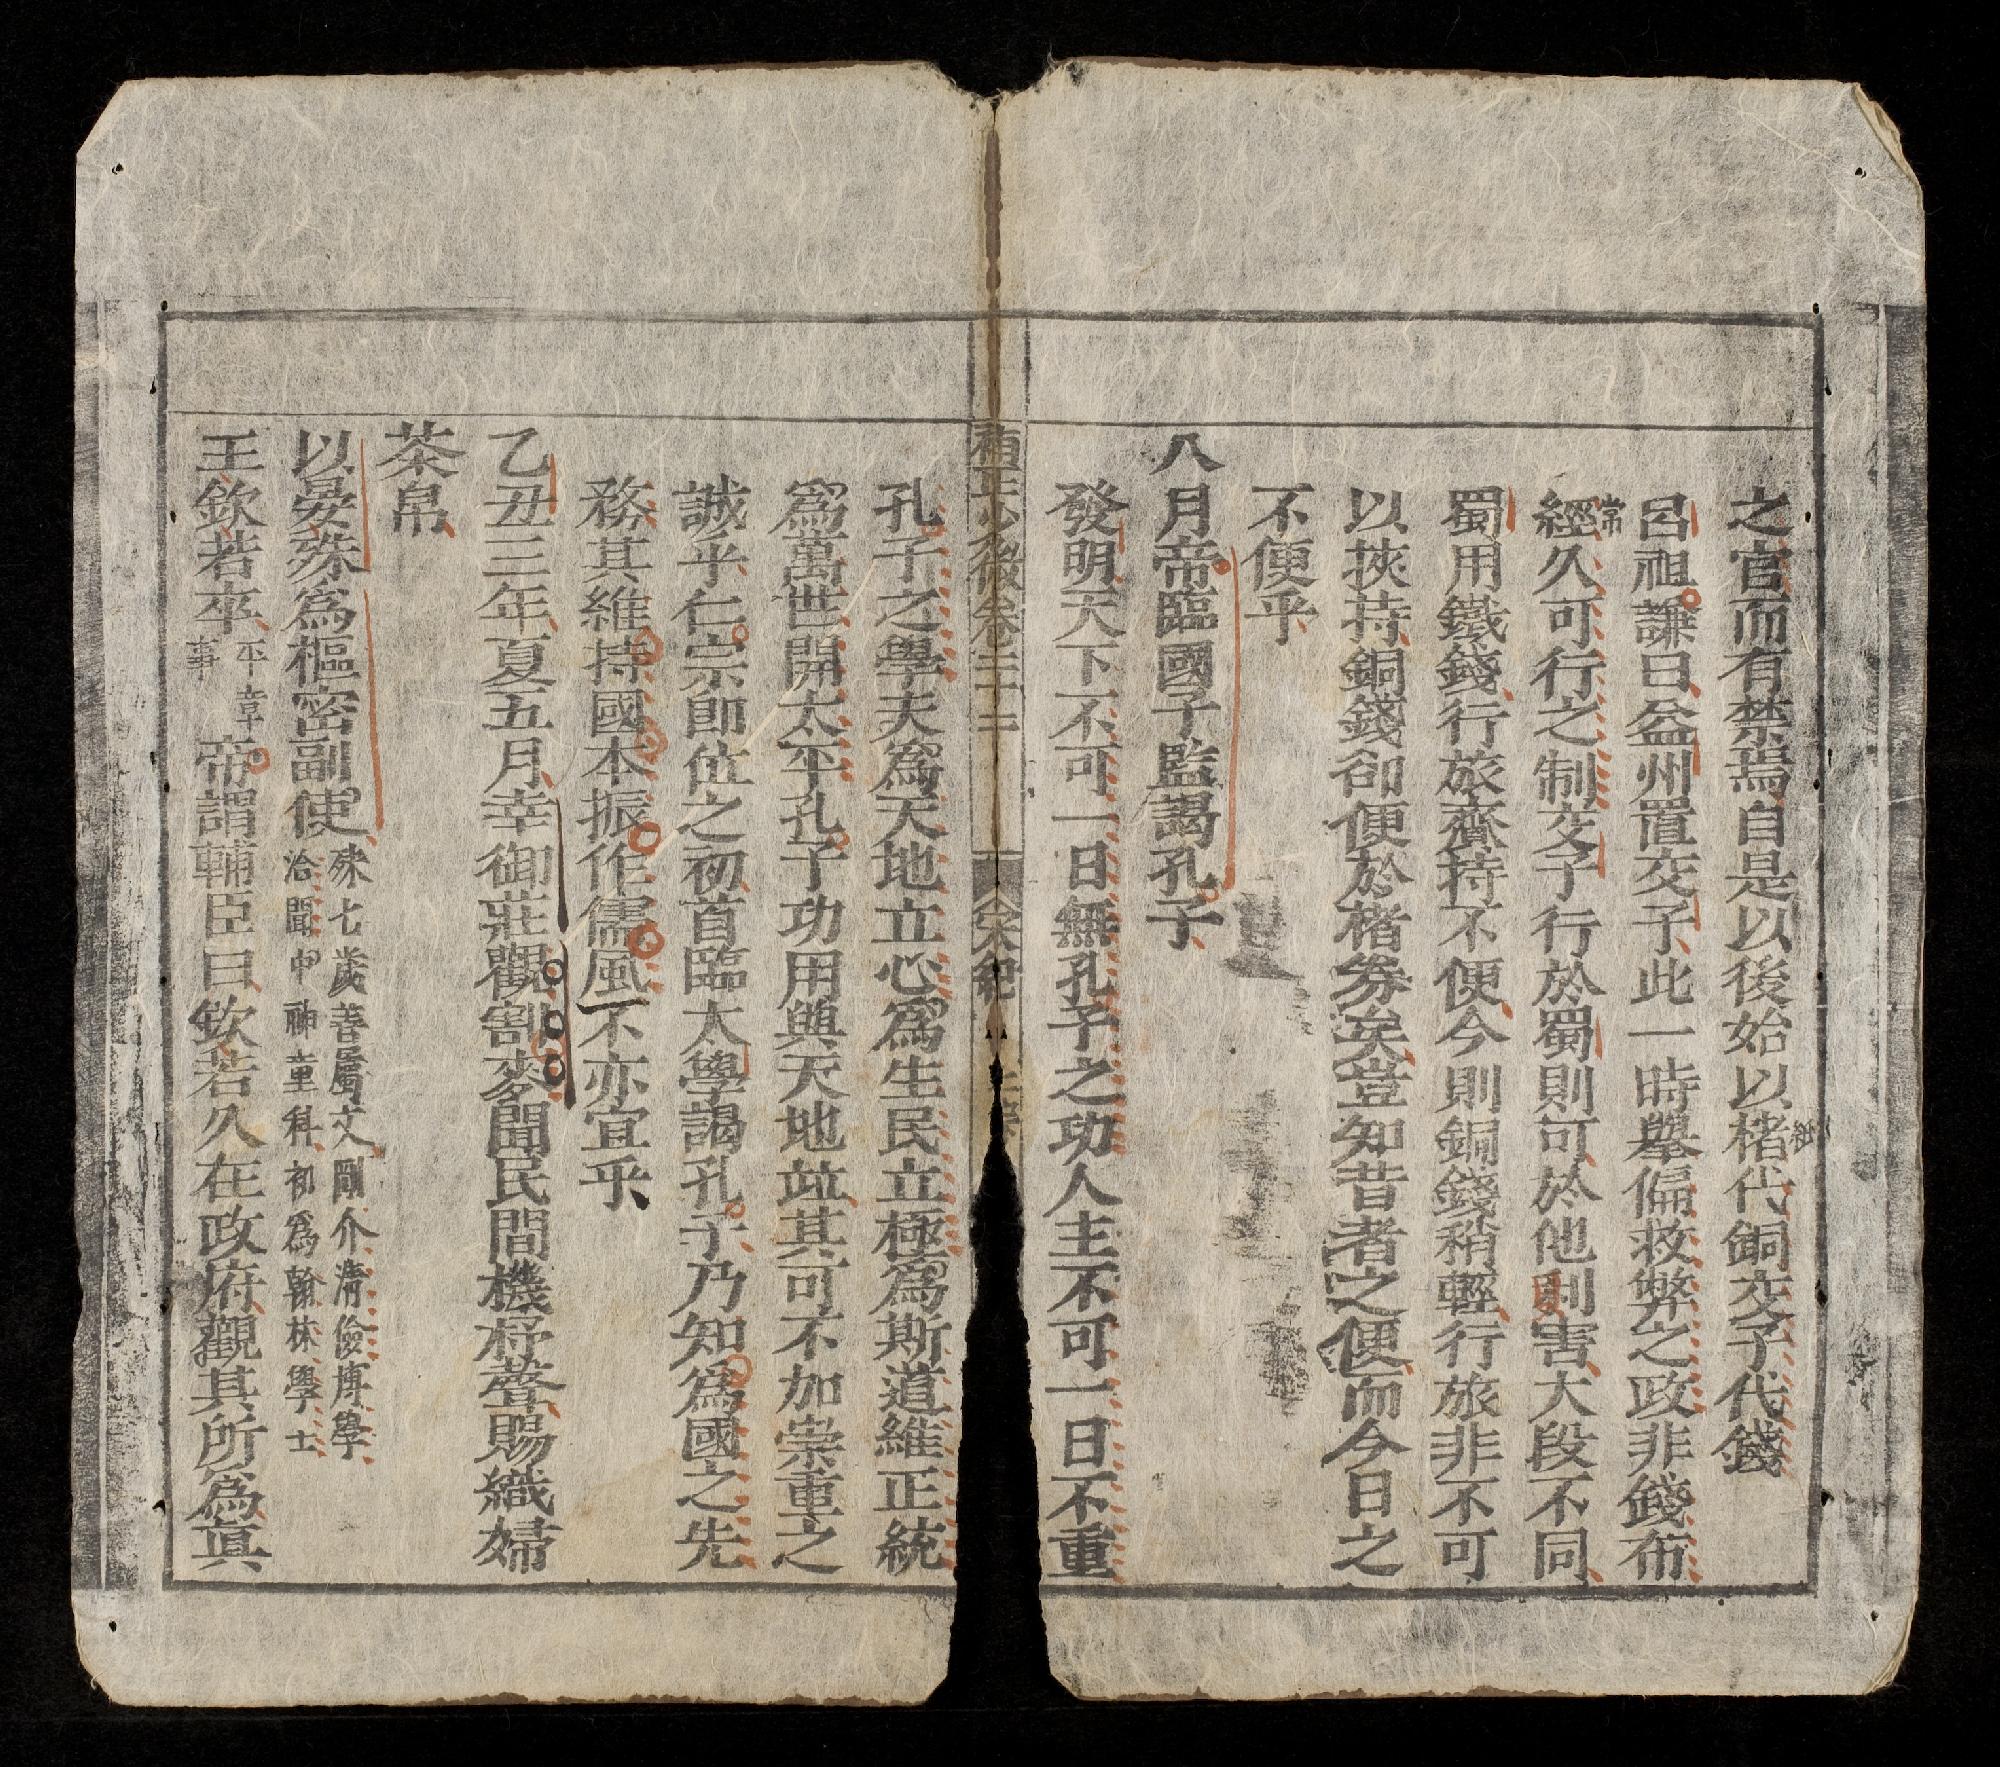 之官而有禁焉自是以後始以楮代銅交子代錢
紙
呂祖謙曰益州置交子此一時舉偏救弊之政非錢布
常
經久可行之制交子行於蜀則可於他利害大段不同
蜀用鐵錢行旅齎持不便今則銅錢稍輕行旅非不可
以挾持銅錢卻便於楮券矣豈知昔者之便而今日之
不便乎
八月帝臨國子監謁孔子
發明天下不可一日無孔子之功人主不可一日不重
補正少微卷三十二 宋紀 仁宗
孔子之學夫爲天地立心爲生民立極爲斯道維正統
爲萬世開太平孔子功用與天地竝其可不加崇重之
誠乎仁宗即位之初首臨太學謁孔子乃知爲國之先
務其維持國本振作儒風不亦宜乎
乙丑三年夏五月幸御莊觀割麥聞民間機杼聲賜織婦
茶帛
以晏殊爲樞密副使殊七歲善屬文剛介清儉博學
洽聞中神童科初爲翰林學士
王欽若卒平章
事帝謂輔臣曰欽若久在政府觀其所爲眞